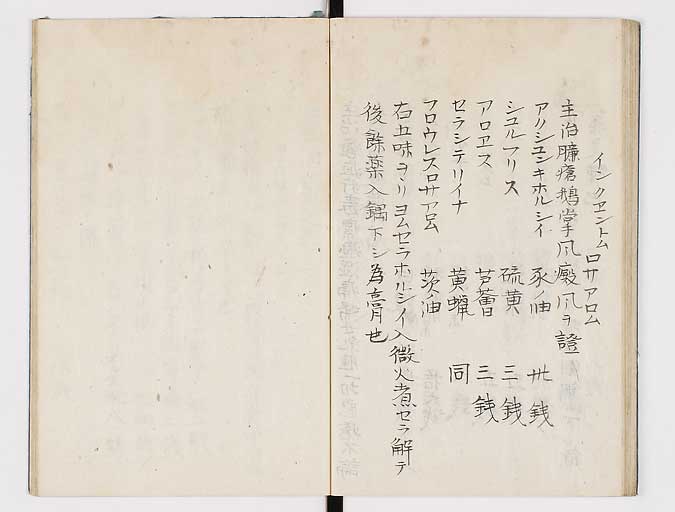 イングエントム
ロサアロム
主治臁瘡鵝掌风癜风ヲ證
アクシユンキホルシイ 豕ノ油 卅銭
シユルフリス 硫黄 三銭
アロエス 芦薈 三銭
セラシテリイナ 黄蝋 同
フロウレスロサアロム 茨ノ油
右五味ヲヲリヨムセラホルシイ入微火煮セラ解テ
後餘薬入鍋下シ為膏也